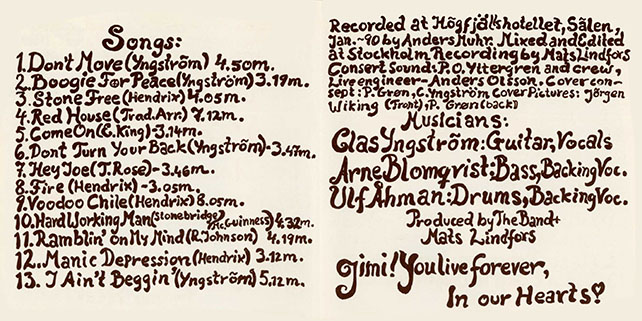 Songs:
1. Don't Move (Yngström) 4.50m.
2. Boogie For Peace (Yngström) 3.19m.
3. Stone Free (Hendrix) 4.05m.
4. Red House (Trad. Arr.) 7.12m.
5. Come On (E. King) -3.14m.
6. Dont Turn Your Back (Yngström) -3.47m.
7. Hey Joe (T. Rose) -3.46m.
8. Fire (Hendrix) -3.05m.
9. Voodoo Chile (Hendrix) 8.05m.
10. Hard Working Man (Stonebridge/McGuinness) 4.32m.
11. Ramblin' On My Mind (R. Johnson) 4.19m.
12.. Manic Depression (Hendrix) 3.12m.
13. I Ain't Beggin' (Yngström) 5.12m.
Recorded at Högfjällshotellet, Sälen,
Jan. ~90 by Anders Muhr. Mixed and Edited
at Stockholm Recording by Mats Lindfors
Consert Sound: P.O. Yttergren and crew,
Live engineer - Anders Olsson. Cover con-
sept: P. Grøn, C. Yngström Cover Pictures: Jörgen
Wiking (Front), P. Grøn (back)
Musicians:
Clas Yngström: Guitar, Vocals
Arne Blomqvist; Bass, Backing Voc.
Ulf Åhman: Drums, Backing Voc.
Produced by The Band +
Mats Lindfors
Jimi! You live forever,
In our Hearts!